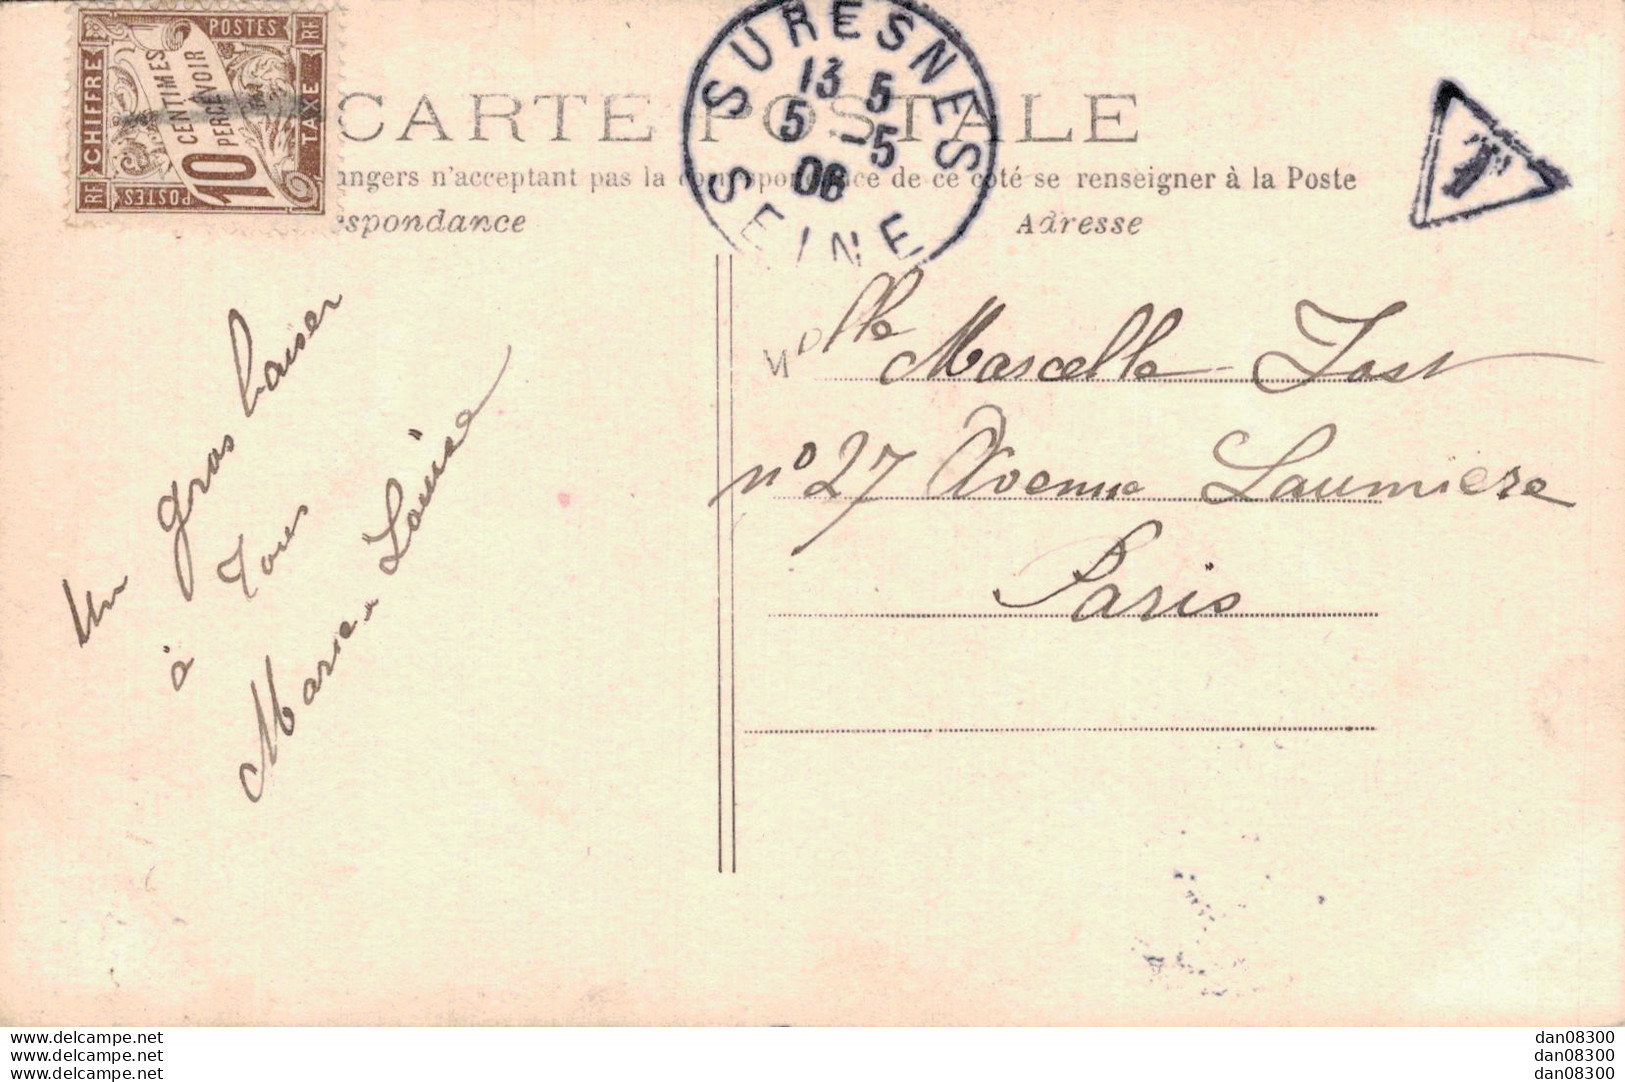 POSTES RF
CHIFFRE
10 CENTIMES
PERCEVOIR
TAXE
RF POSTES
CARTE POSTALE
angers n'acceptant pas la correspondance de ce côté se renseigner à la Poste
espondance
Adresse
SURESNES
13 5
5 -5
06
SEINE
T
Un gros baiser
à Tous
Marie-Louise
Melle Marcelle Jost
n° 27 Avenue Laumière
Paris
www.delcampe.net
www.delcampe.net
www.delcampe.net
dan08300
dan08300
dan08300